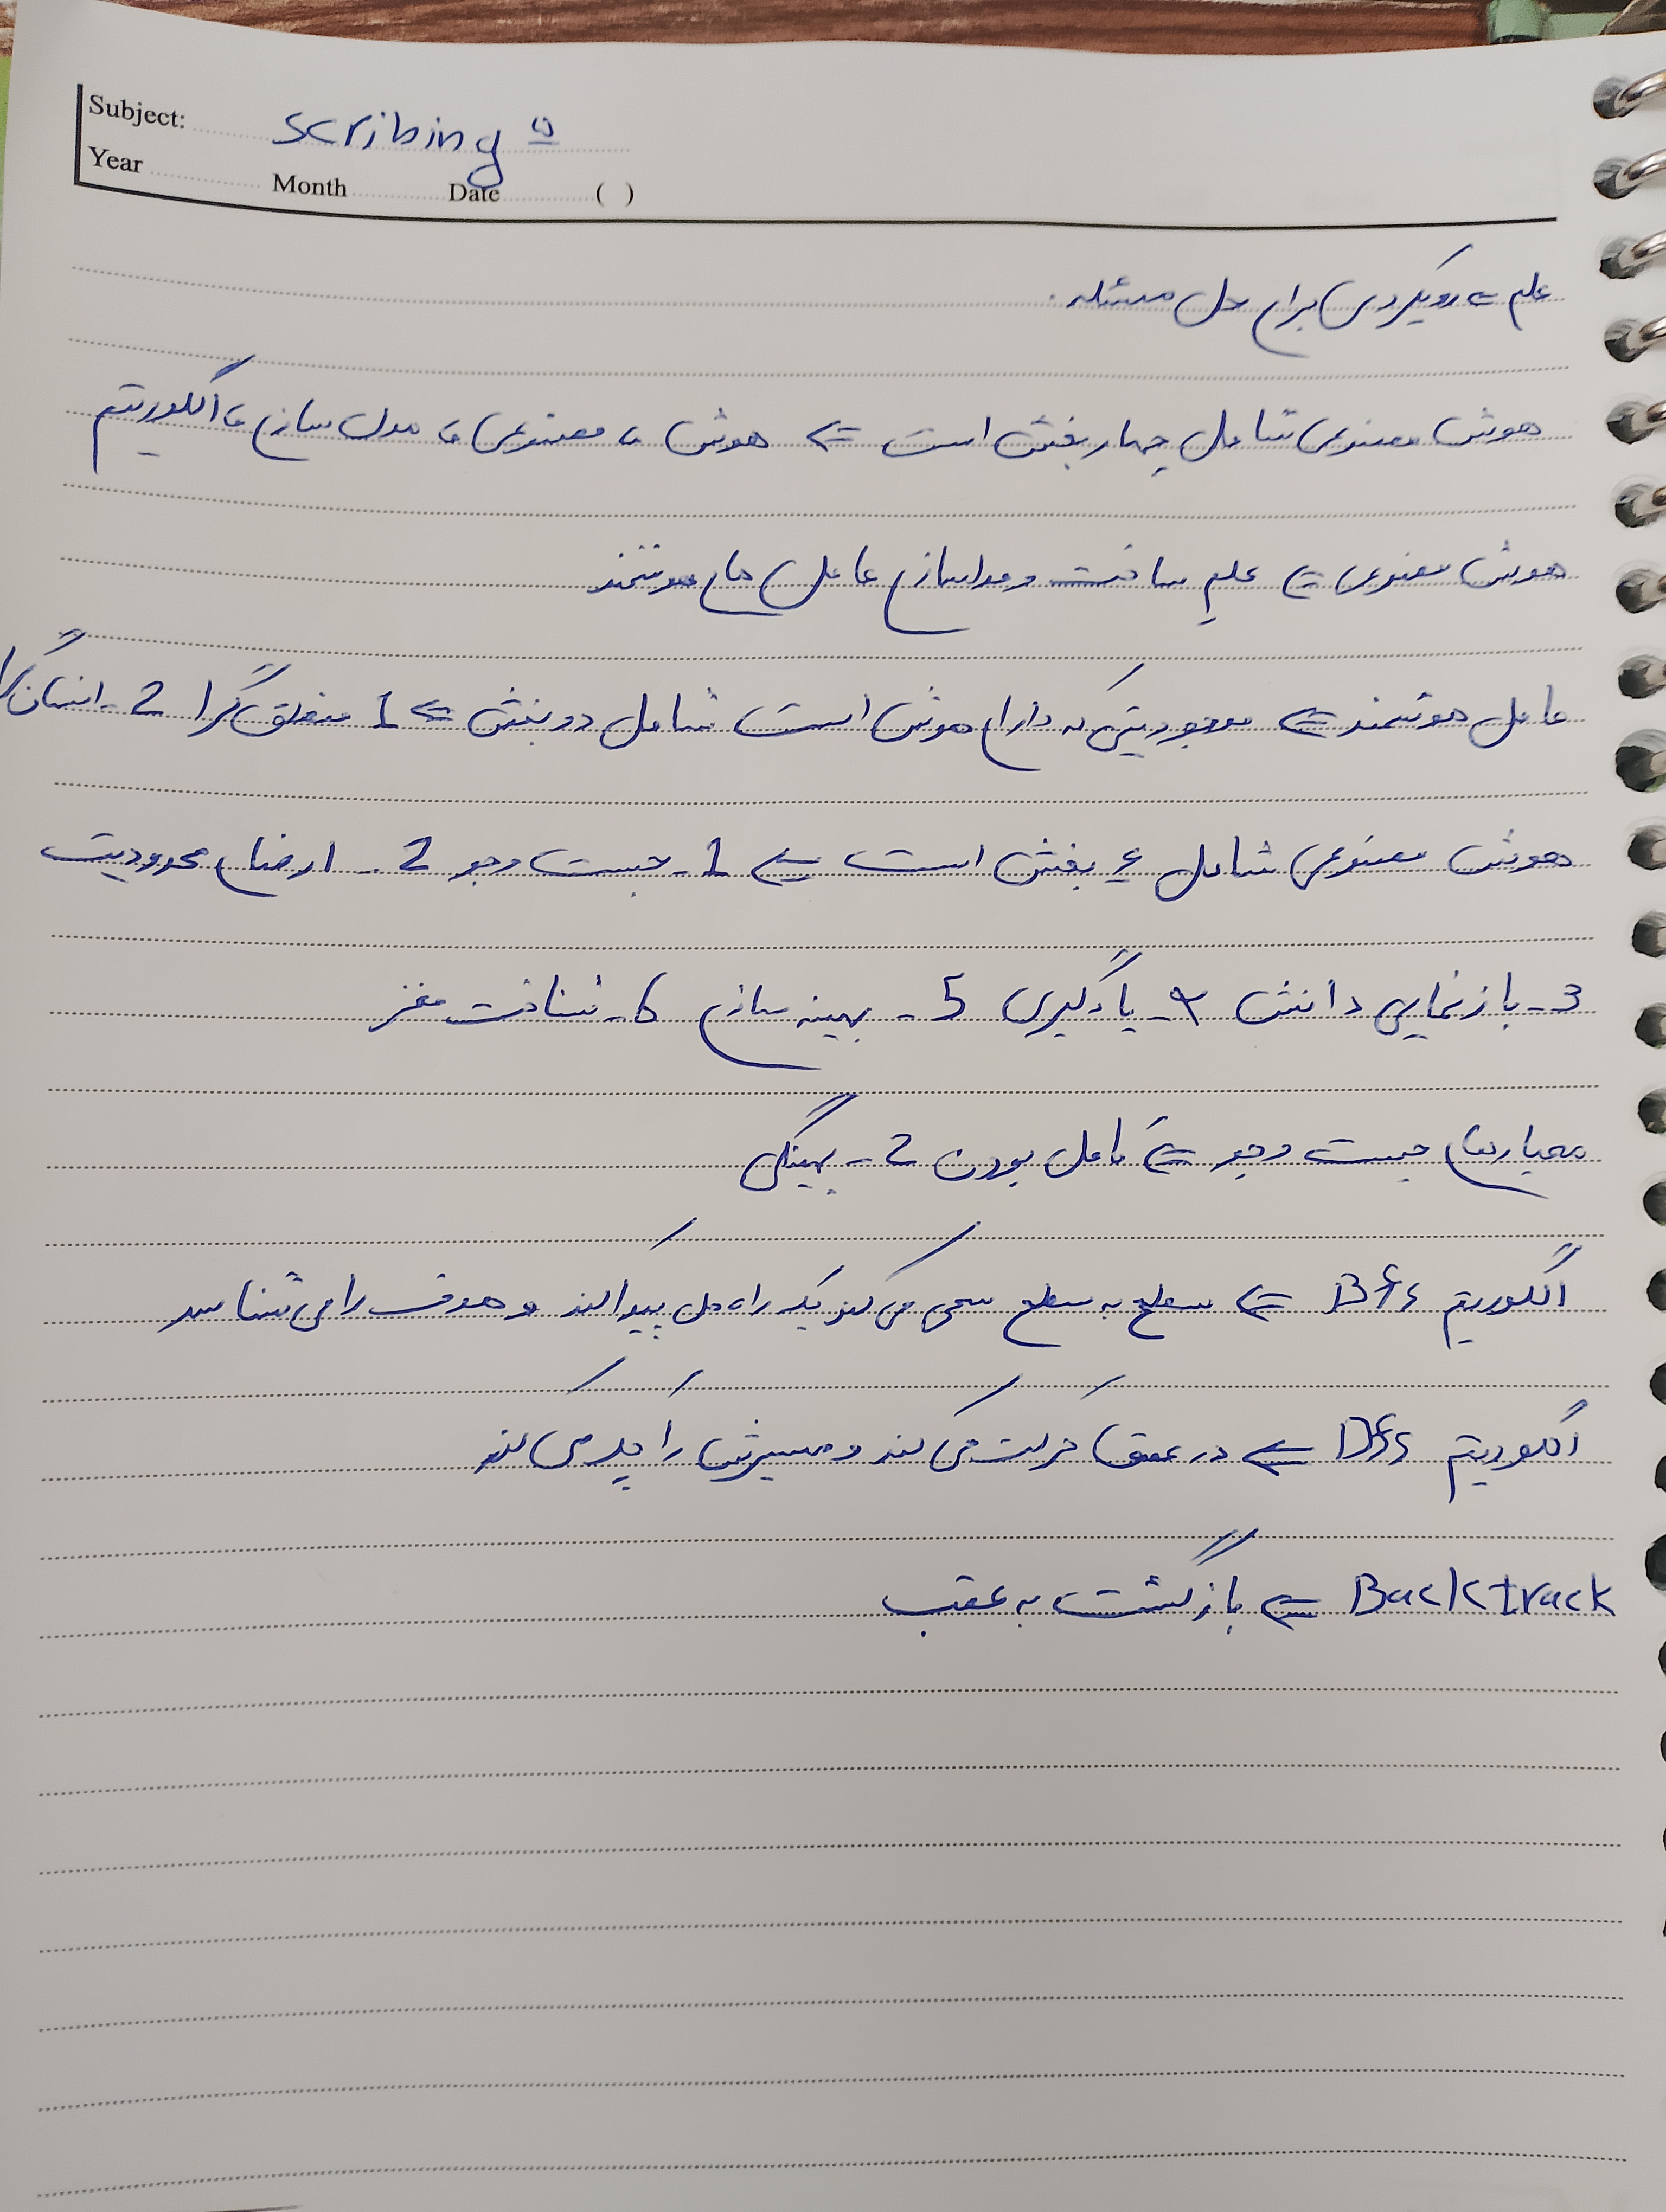 Subject: scribing
Year Month Date ( )
علم ⇐ رویکردی برای حل مسئله.
هوش مصنوعی شامل چهار بخش است ⇐ هوش، مصنوعی، مدل سازی، الگوریتم
هوش مصنوعی ⇐ علم ساخت و مدلسازی عامل های هوشمند
عامل هوشمند ⇐ موجودیتی که دارای هوش است شامل دو بخش ⇐ 1 منطق گرا 2- انسان گرا
هوش مصنوعی شامل ۶ بخش است ⇐ 1- جست و جو 2- ارضای محدودیت
3- بازنمایی دانش ۴- یادگیری 5- بهینه سازی 6- شناخت مغز
معیارهای جست و جو ⇐ کامل بودن 2- بهینگی
الگوریتم Bfs ⇐ سطح به سطح سعی می کند یک راه حل پیدا کند و هدف را می شناسد
الگوریتم Dfs ⇐ در عمق حرکت می کند و مسیرش را چک می کند
Backtrack ⇐ بازگشت به عقب